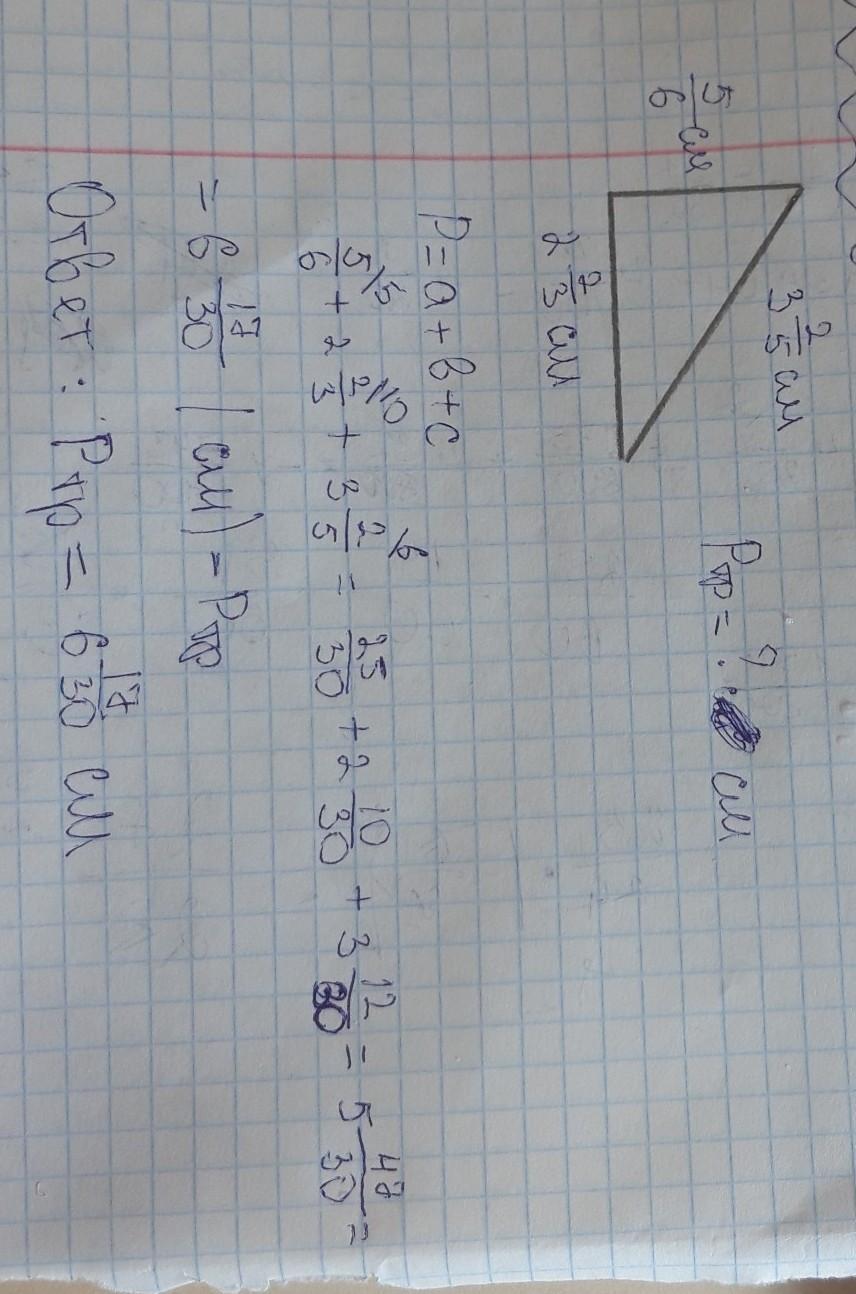 3 2/5 см
5/6 см
Pтр = ? см
2 2/3 см
P = a + b + c
5/6 \5 + 2 2/3 \10 + 3 2/5 \6 = 25/30 + 2 10/30 + 3 12/30 = 5 47/30 =
= 6 17/30 (см) - Pтр
Ответ: Pтр = 6 17/30 см